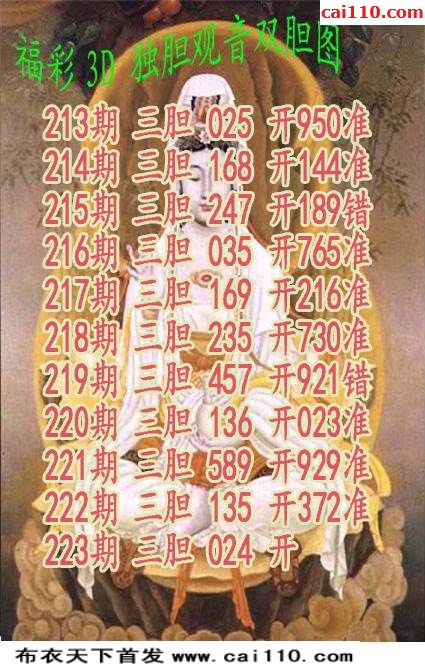 cai110.com
福彩3D 独胆观音双胆图
213期 三胆 025 开950准
214期 三胆 168 开144准
215期 三胆 247 开189错
216期 三胆 035 开765准
217期 三胆 169 开216准
218期 三胆 235 开730准
219期 三胆 457 开921错
220期 三胆 136 开023准
221期 三胆 589 开929准
222期 三胆 135 开372准
223期 三胆 024 开
布衣天下首发 www.cai110.com